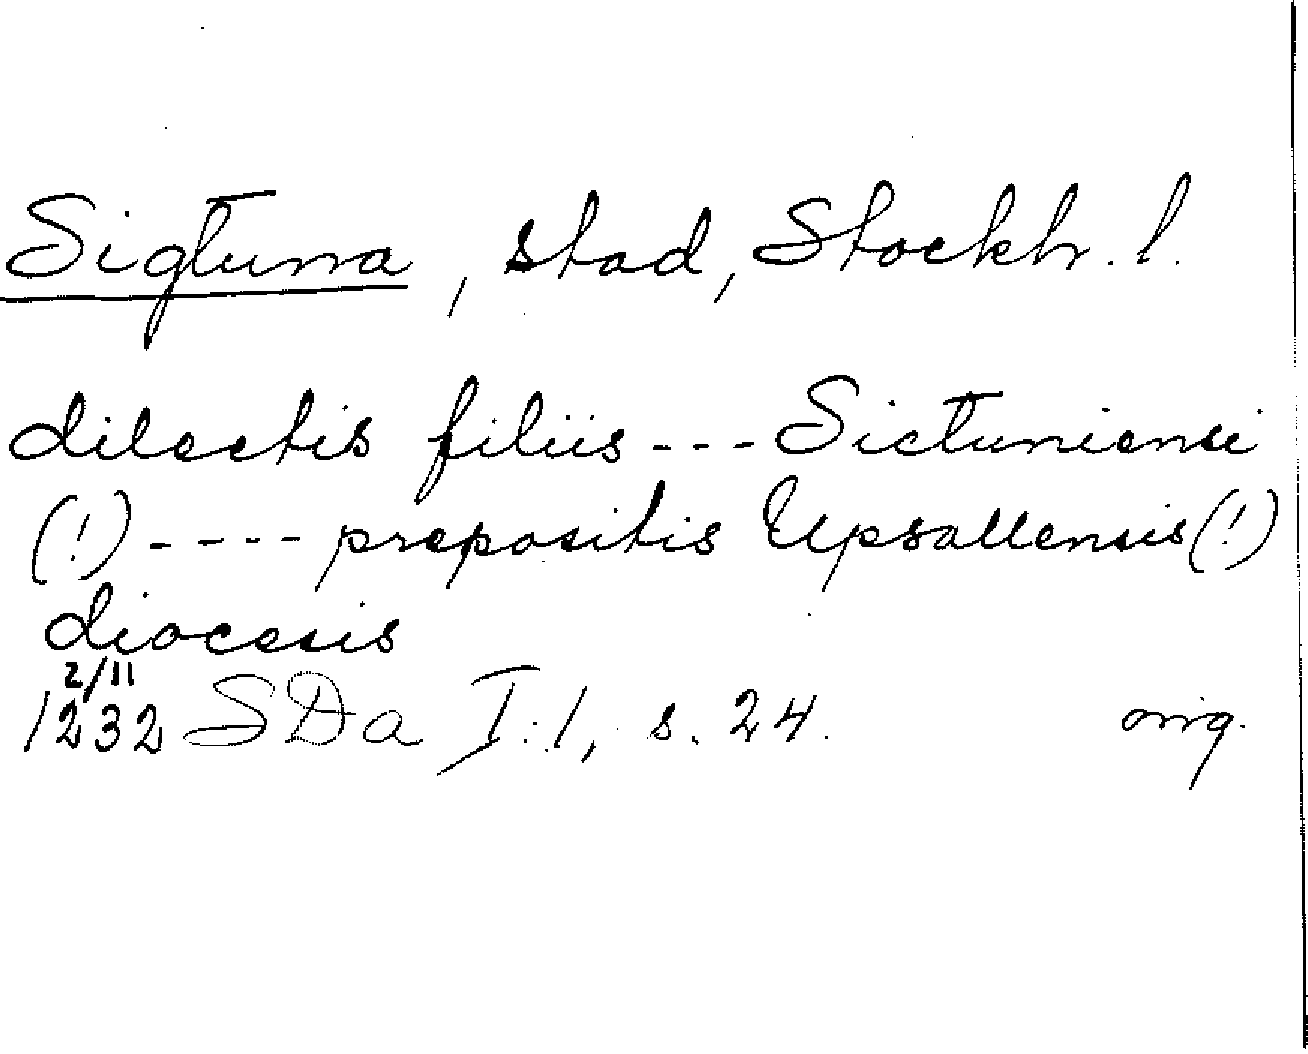 Sigtuna, stad, Stockh. l.
dilectis filiis --- Sictuniensi
(!) ---- prepositis Upsallensis (!)
diocesis
2/11
1232 SDa I:1, s. 24. orig.